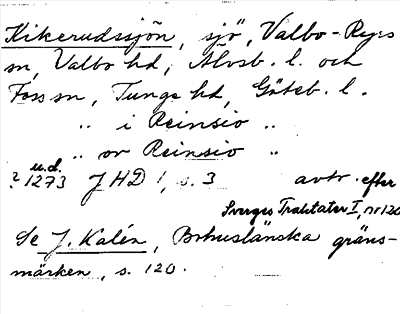 Kikerudssjön, sjö, Valbo-Ryrs
sn, Valbo hd, Älvsb. l. och
Foss sn, Tunge hd, Göteb. l.
" i Reinsio "
" or Reinsio "
u.d.
? 1273 JHD 1, s. 3 avtr. efter
Sverges Traktater I, nr 120
Se J. Kalén, Bohuslänska gräns-
märken, s. 120.